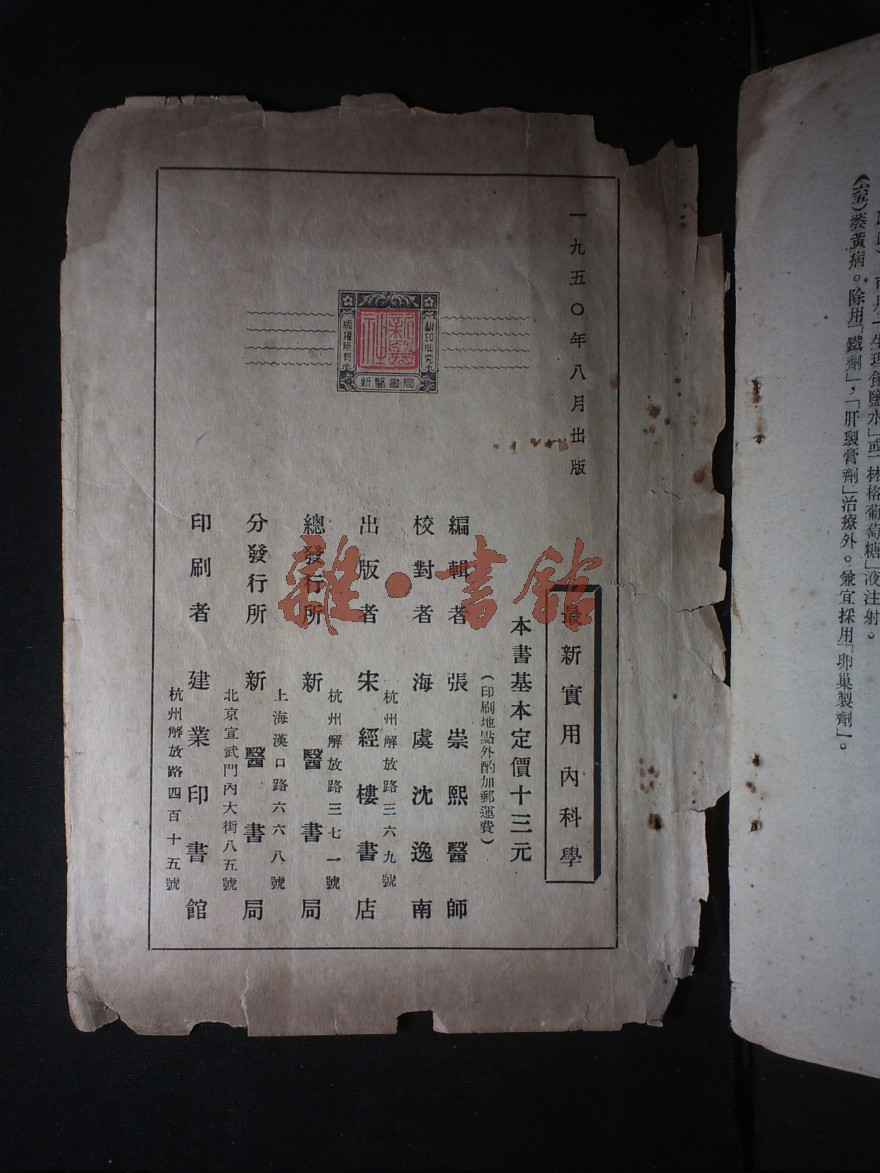 生理食鹽水」或「林格葡萄糖」液注射。
萎黃病。除用「鐵劑」,「肝製膏劑」治療外。兼宜採用「卵巢製劑」。
一九五〇年八月出版
翻印必究
版權所有
新醫書局
最新實用內科學
本書基本定價十三元
(印刷地點外酌加郵運費)
編輯者 張崇熙醫師
校對者 海虞沈逸南
杭州解放路三六九號
出版者 宋經樓書店
杭州解放路三七一號
總發行所 新醫書局
上海漢口路六六八號
分發行所 新醫書局
北京宣武門內大街八五號
印刷者 建業印書館
杭州解放路四百十五號
雜·書館